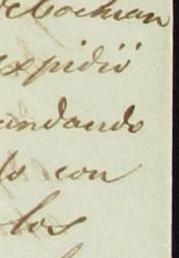 Cochran
expidió
undando
lo con
los